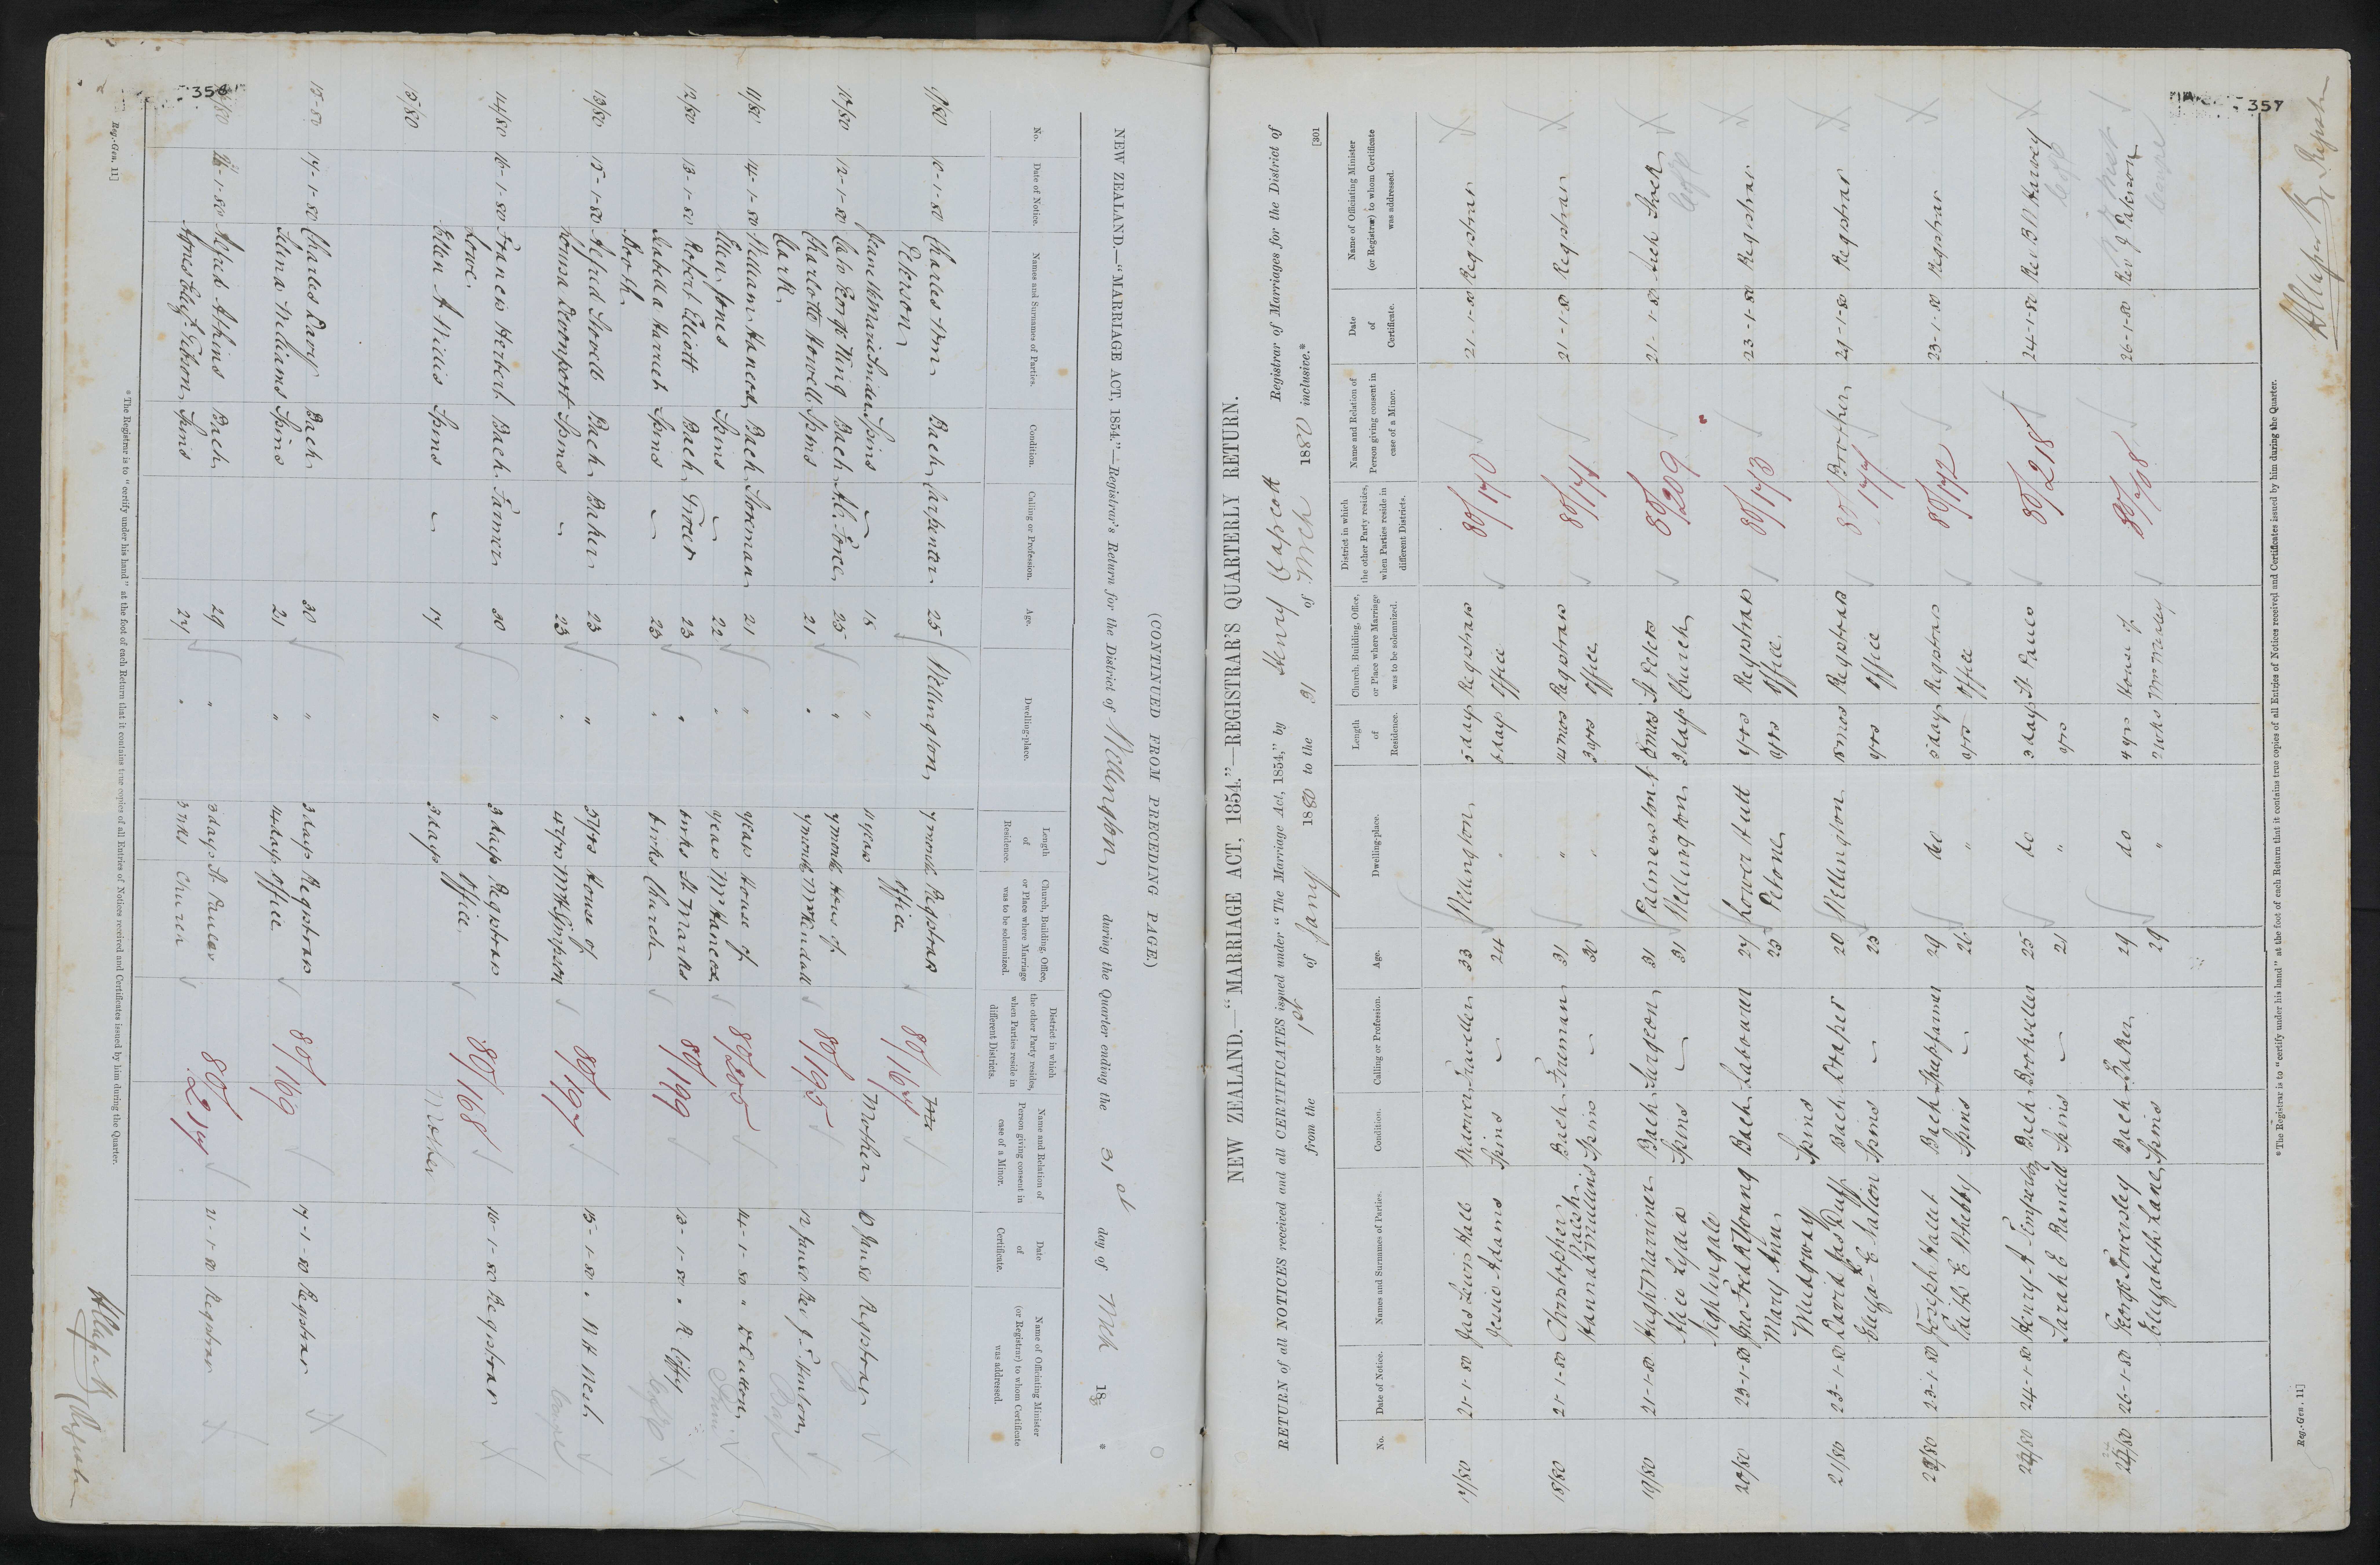 356
(CONTINUED FROM PRECEDING PAGE.)
NEW ZEALAND.—"MARRIAGE ACT, 1854."—Registrar's Return for the District of Wellington during the Quarter ending the 31st day of Mch 1880.
No. Date of Notice. Names and Surnames of Parties. Condition. Calling or Profession. Age. Dwelling-place. Length of Residence. Church, Building, Office, or Place where Marriage was to be solemnized. District in which the other Party resides, when Parties reside in different Districts. Name and Relation of Person giving consent in case of a Minor. Date of Certificate. Name of Officiating Minister (or Registrar) to whom Certificate was addressed.
9/80 10-1-80 Charles Wm Bach Carpenter 25 Wellington 7 months Registrars 80/167
Peterson Office
Jane Maria Snider Spins 18 " 11 years Mother 10 Jan 80 Registrar
10/80 12-1-80 Caleb George King Bach A.C. Force 25 " 7 months House of 80/195
Charlotte Howell Spins 21 " 7 months Mr Kendall 12 Jan 80 Rev J. E. Hinton
Clark
11/80 14-1-80 William Hancox Bach Storeman 21 " years House of 80/205 14-1-80 " Dutton
Ellen Jones Spins 22 " years Mr Hancox
12/80 13-1-80 Robert Elliott Bach Grocer 23 " 6 wks St Marks 80/199 13-1-80 " R Coffey
Isabella Harriet Spins 23 " 6 wks Church
Booth
13/80 15-1-80 Alfred Lovell Bach Baker 23 " 5 yrs House of 80/197 15-1-80 " W H West
Louisa Devonport Spins 23 " 4 yrs Mr H Simpson
14/80 16-1-80 Francis Herbert Bach Farmer 30 " 3 days Registrars 80/168 16-1-80 Registrar
Lowe Office
Ellen A Willis Spins 17 " 3 days Mother
15/80
15-80 17-1-80 Charles Davy Bach 30 " 3 days Registrars 80/169 17-1-80 Registrar
Selina Williams Spins 21 " 14 days Office
16/80 -1-80 Alfred Athins Bach 29 " 3 days St Pauls 80/217 21-1-80 Registrar
Agnes Eliz. Gibson Spins 24 " 3 wks Church
* The Registrar is to "certify under his hand" at the foot of each Return that it contains true copies of all Entries of Notices received and Certificates issued by him during the Quarter.
Reg.-Gen. 11]
357
[301
NEW ZEALAND.—"MARRIAGE ACT, 1854."—REGISTRAR'S QUARTERLY RETURN.
RETURN of all NOTICES received and all CERTIFICATES issued under "The Marriage Act, 1854," by Henry Capcott Registrar of Marriages for the District of
from the 1st of Jany 1880 to the 31 of Mch 1880 inclusive.*
No. Date of Notice. Names and Surnames of Parties. Condition. Calling or Profession. Age. Dwelling-place. Length of Residence. Church, Building, Office, or Place where Marriage was to be solemnized. District in which the other Party resides, when Parties reside in different Districts. Name and Relation of Person giving consent in case of a Minor. Date of Certificate. Name of Officiating Minister (or Registrar) to whom Certificate was addressed.
17/80 21-1-80 Jas Lewis Hall Widower Traveller 33 Wellington 5 days Registrars 80/170 21-1-80 Registrar
Jessie Adams Spins 24 " 6 days Office
18/80 21-1-80 Christopher Bach Fireman 31 " 14 mos Registrars 80/171 21-1-80 Registrar
Walsh
Hannah Mullins Spins 30 " 3 yrs Office
19/80 21-1-80 Hugh Mariner Bach Surgeon 31 Palmerston N 8 mos St Peters 80/209 21-1-80 Arch Stock
Alice Lydia Spins 31 Wellington 3 days Church
Nightingale
20/80 23-1-80 Jno Fred A Young Bach Labourer 27 Lower Hutt yrs Registrars 80/173 23-1-80 Registrar
Mary Ann 23 Petone yrs Office
Mudgway Spins
21/80 23-1-80 David Jas Duff Bach Draper 20 Wellington 18 mos Registrars 80/174 Brother 29-1-80 Registrar
Eliza E Nation Spins 23 yrs Office
22/80 23-1-80 Joseph Hallet Bach 29 do 3 days Registrars 80/172 23-1-80 Registrar
Faith E Whebby Spins 26 " yrs Office
23/80 24-1-80 Henry A Emperor Bach Bookseller 25 do 3 days St Pauls 80/218 24-1-80 Rev B W Harvey
Sarah E Randell Spins 21 " yrs
24/80 26-1-80 George Towersley Bach Baker 29 do 4 yrs House of 80/198 26-1-80 Rev J Paterson
Elizabeth Lane Spins 29 " 2 wks
* The Registrar is to "certify under his hand" at the foot of each Return that it contains true copies of all Entries of Notices received and Certificates issued by him during the Quarter.
Reg.-Gen. 11]